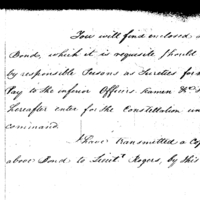 You will find enclosed
Bonds, which it is requisite should
by responsible Persons as Sureties for
Pay to the inferior Officers Ramen &c
hereafter enter for the Constellation
command.
I have transmitted a
above Bond to Lieut. Rogers, by this